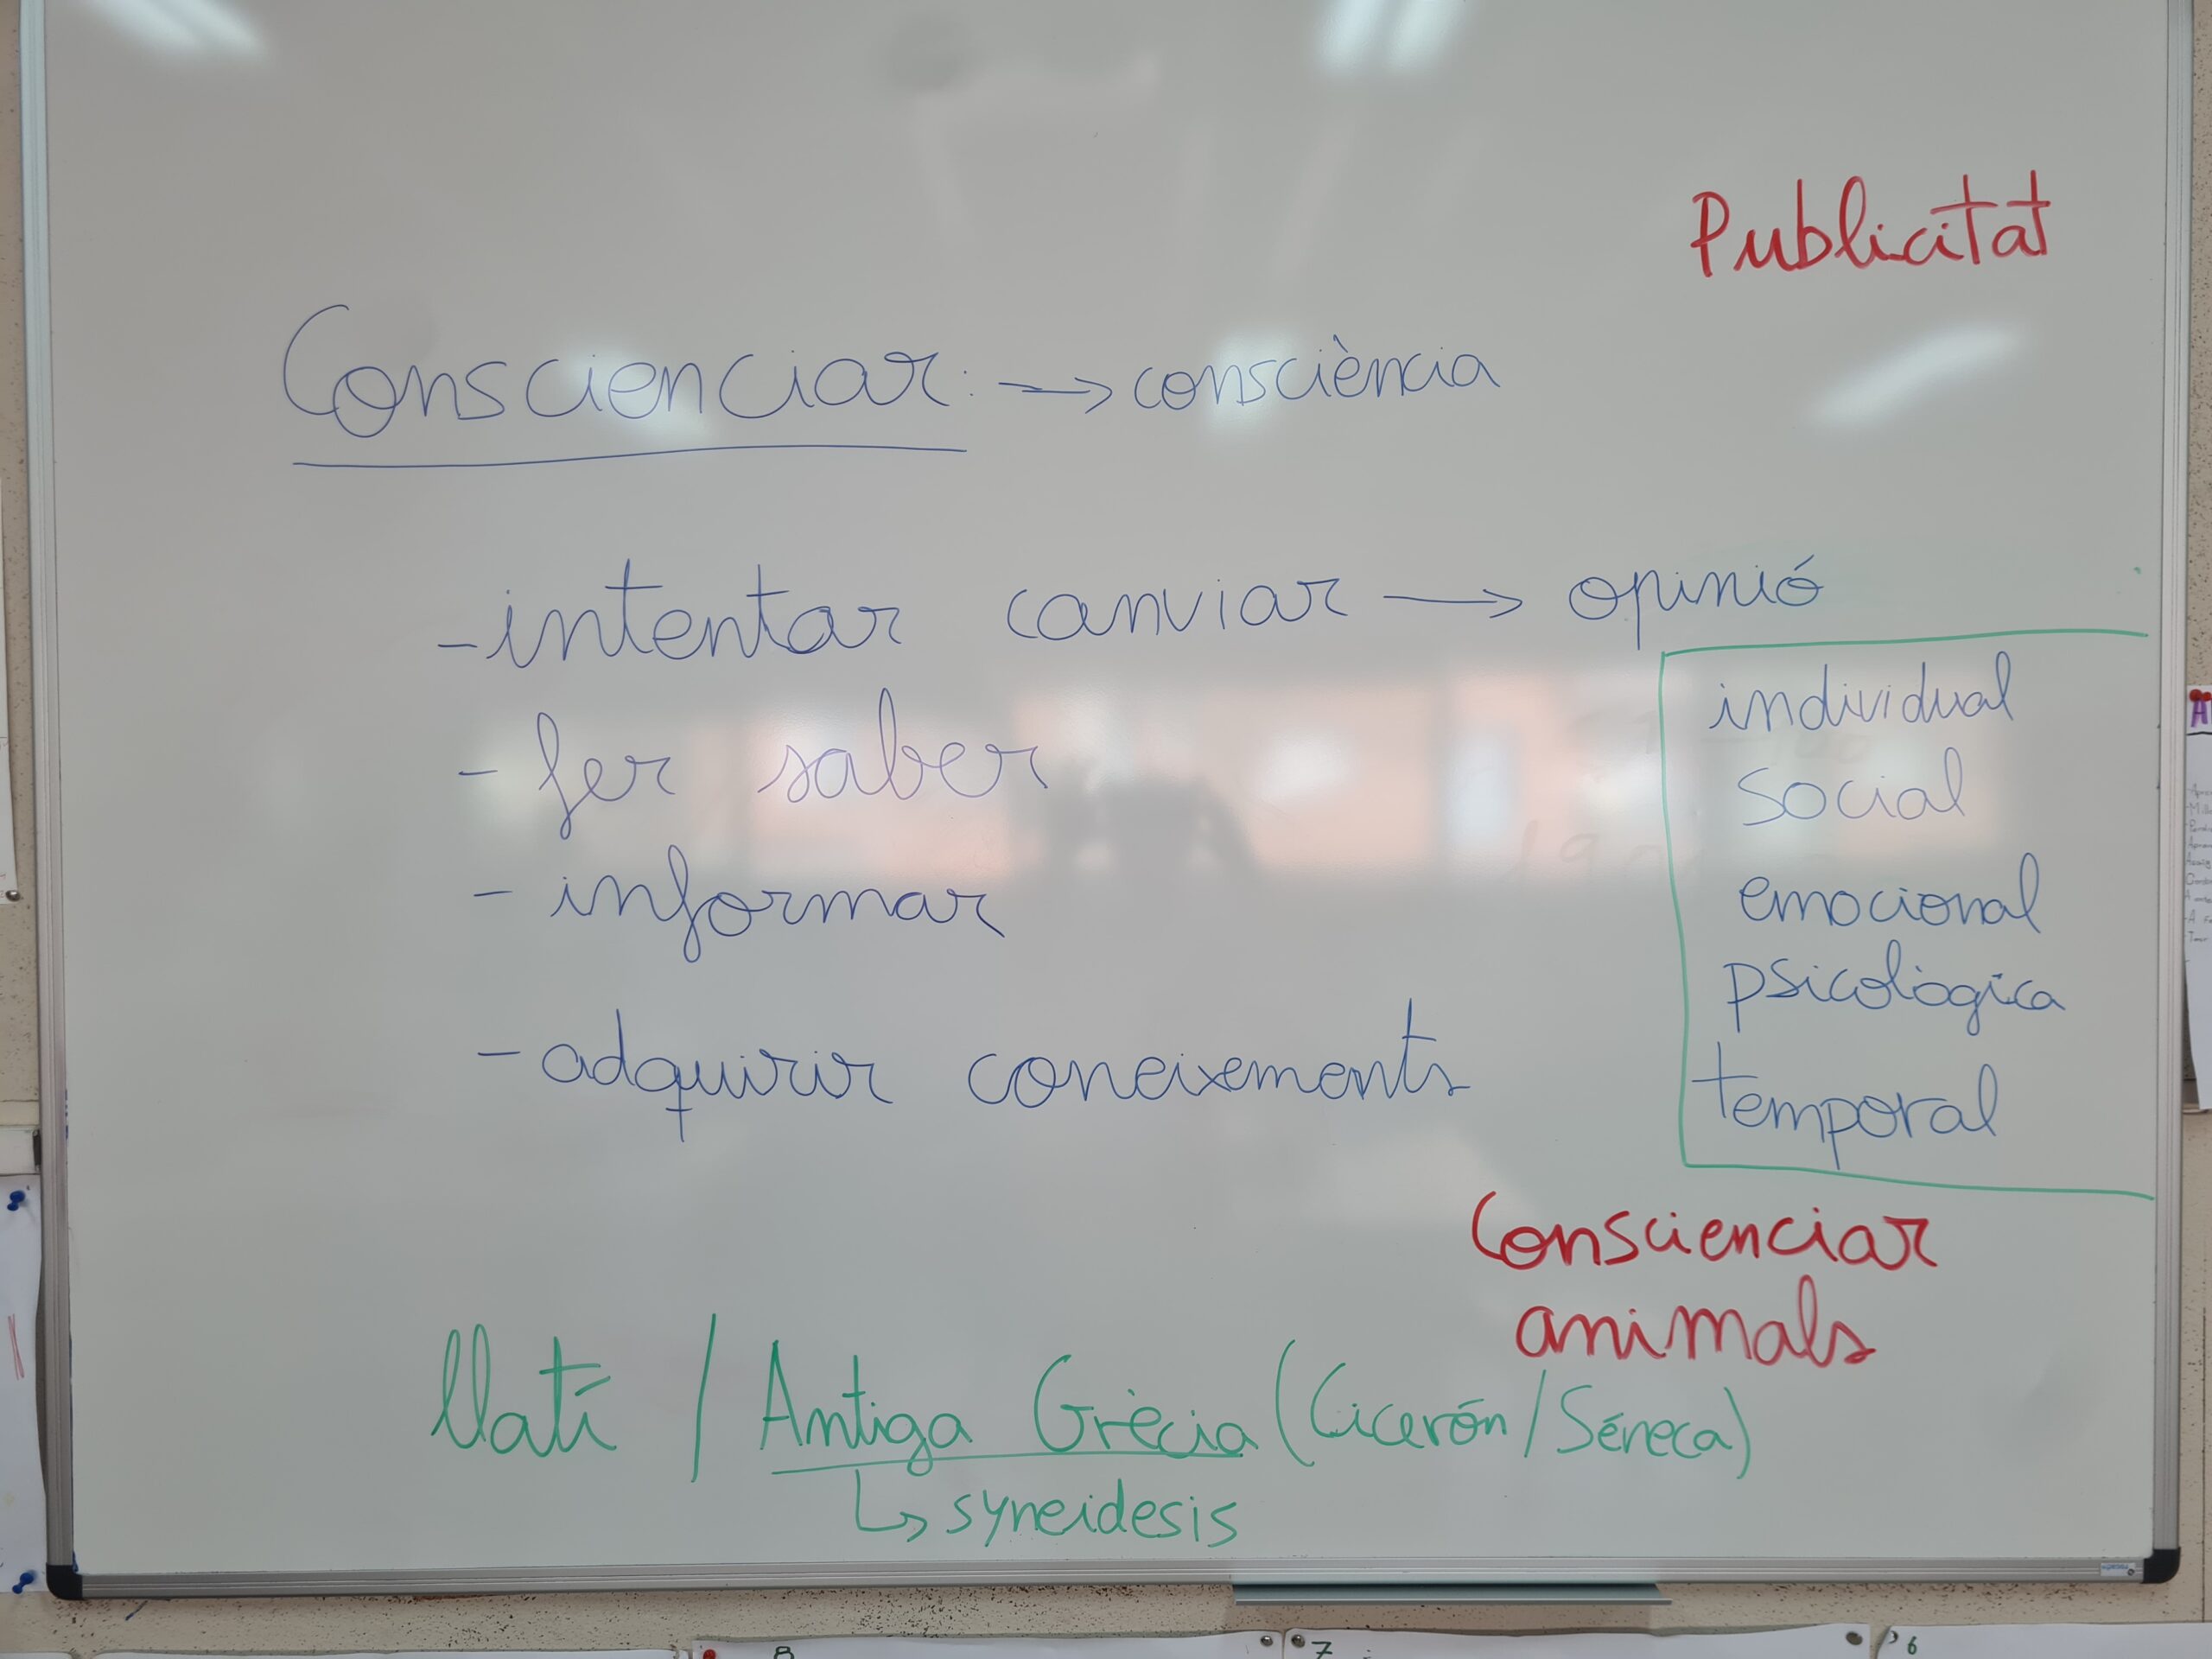 Publicitat
Conscienciar: → consciència
- intentar canviar → opinió
individual
- fer saber
social
- informar
emocional
psicològica
- adquirir coneixements
temporal
Conscienciar
animals
llatí / Antiga Grècia (Cicerón/Séneca)
↳ syneidesis
8
7
6
A